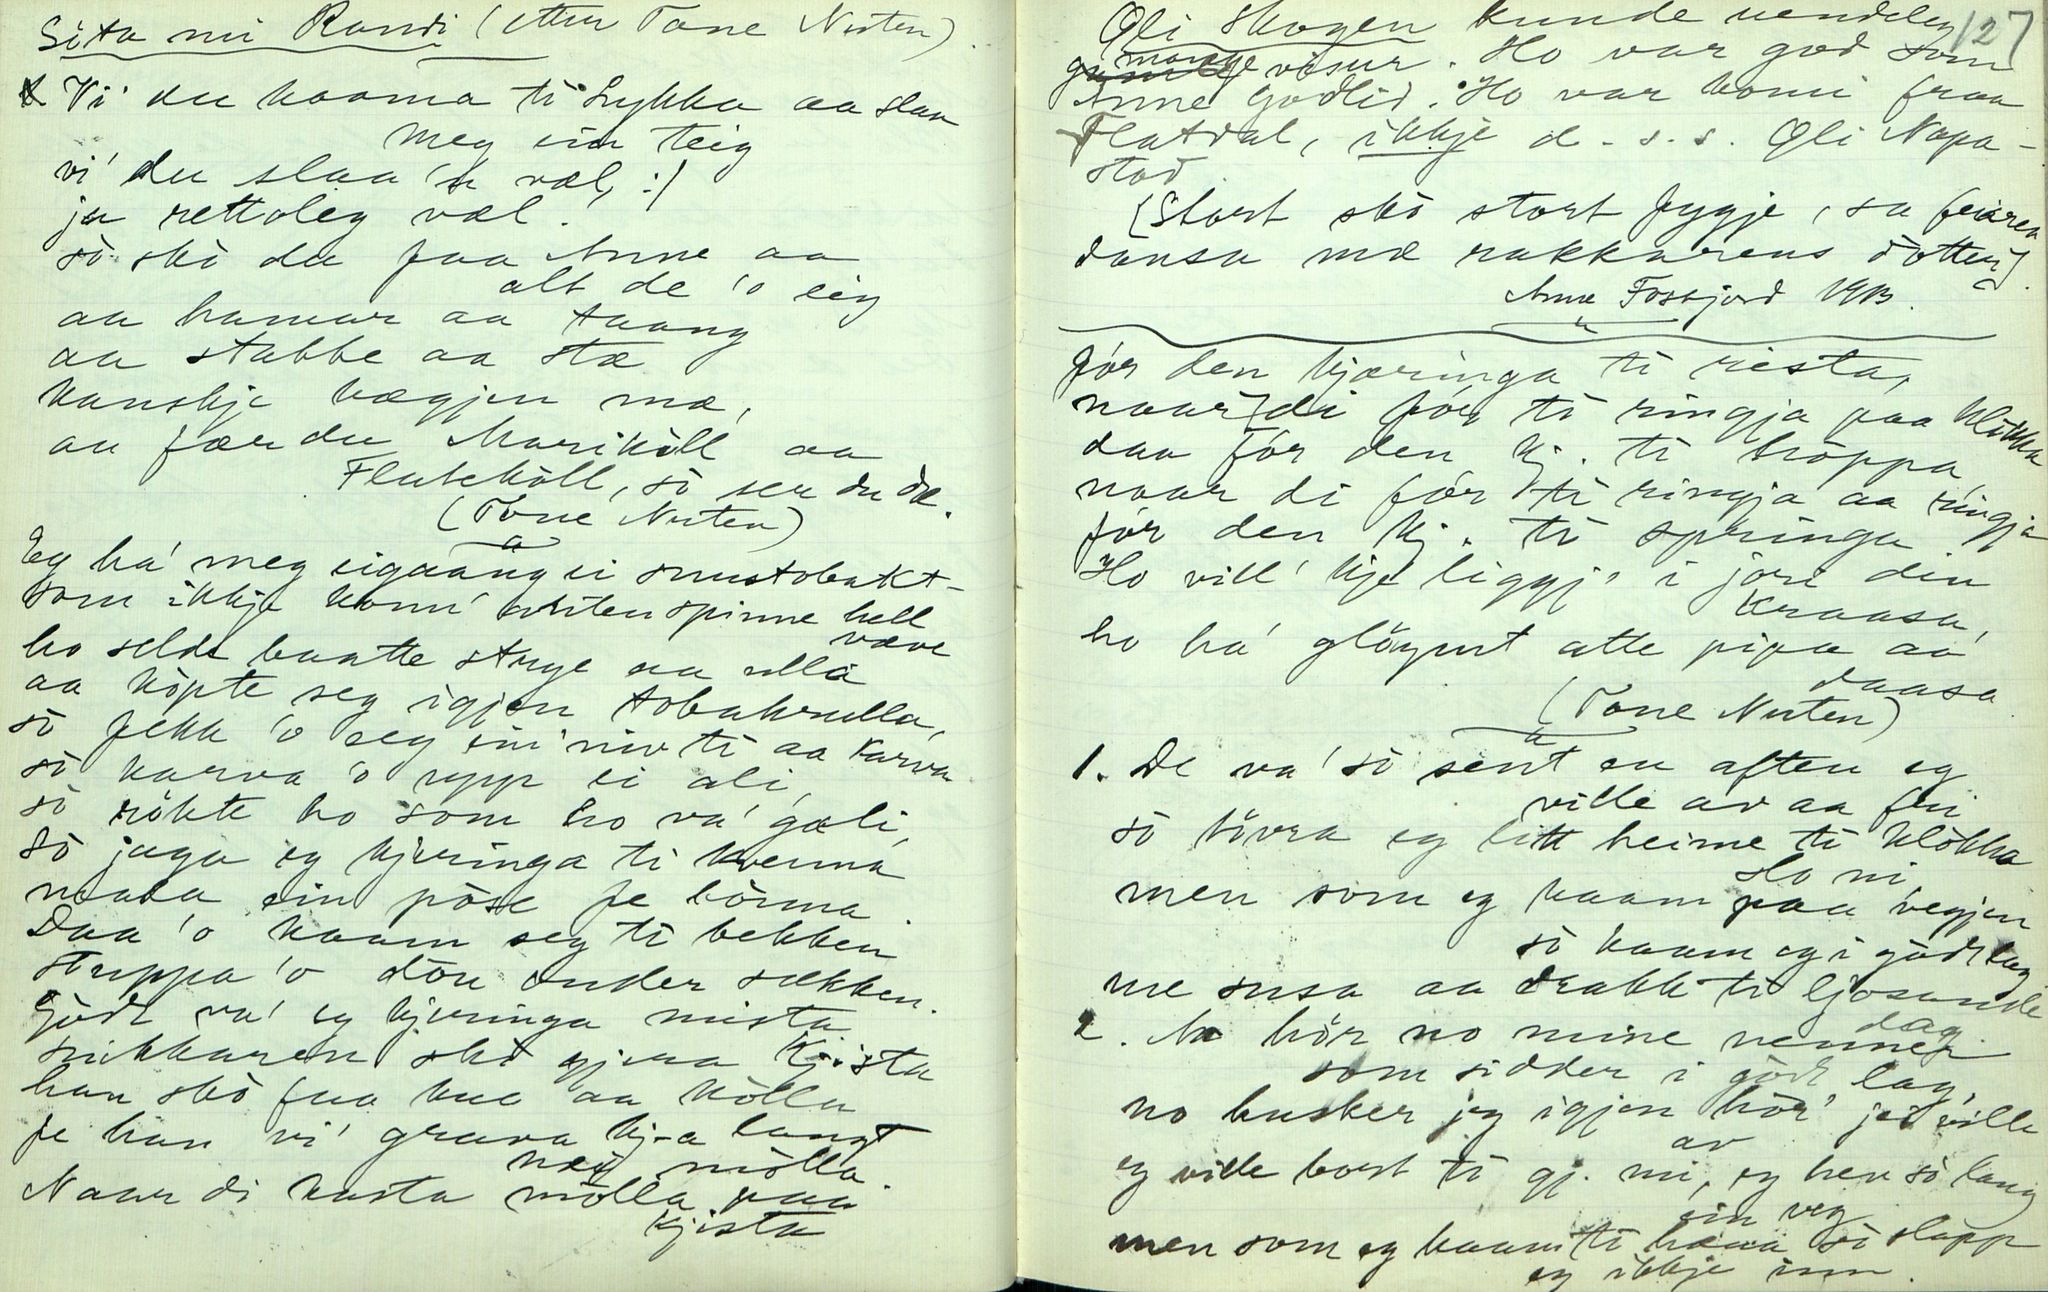 Sita mi Randi (etter Tone Nuten).
Vi' du kaama ti Lykkja aa slaa
meg ein teig
vi' du slaa 'n væl, :/
ja rettoleg væl.
sò skò du faa Anne aa
alt de 'o eig
aa hamar aa taang
aa stabbe aa stæ
kanskje bægjen mæ,
aa fær du Marikòll aa
Flatekòll, sò ser du dæ.
(Tone Nuten)
Eg há' meg eigaang ei snustobakt-
som ikkje kunn' anten spinne hell
væve
ho selde baatte stuge aa ulla
aa köpte seg igjen tobaksrulla,
sò fekk 'o seg ein niv ti aa karva
sò karva 'o upp ei ali,
sò rökte ho som ho va' gali,
Sò jaga eg kjeringa ti kvenna
mala ein pòse fe bònna.
Daa 'o kaam seg ti bekkjen
stuppa 'o dòu under sekkjen.
Godt va' eg kjeringa mista
snikkaren skò gjera kjista
han skò faa kua aa kòlla
fe han vi' grava kj-a langt
neé mòlla.
Naar di kasta mòlla paa
kjista
127
Oli Skogen kunde uendeleg
mange visur. Ho var god som
Anne Godlid. Ho var komi fraa
Flatdal, ikkje d. s. s. Oli Napa-
stad
(Stort skò stort fygje, sa feiaren
dansa mæ rakkarens dòtter).
Anne Fosskjord 1913.
fór den kjæringa ti rista,
naar di fór ti ringja paa klòkka
daa fór den kj. ti hòppa
naar di fór ti ringja aa ringja
fór den kj. ti springa
Ho vill' kje liggj' i jore den
kraasa,
ho há' gløymt atte pipa aa
daasa
(Tone Nuten)
1. De va' sò sent en aften eg
ville av aa fri
sò tòvra eg litt heime ti klòkka
ho ni,
men som eg kaam paa vegjen
sò kaam eg i godt lag
me susa aa drakk ti ljosande
dag.
2. Aa hör no mine venner
som sidder i godt lag,
no husker jeg igjen hòr' jeg ville
av
eg ville bort ti gj. mi, eg hev sò lang
ein veg
men som eg kaam ti hæna sò slapp
eg ikkje inn.